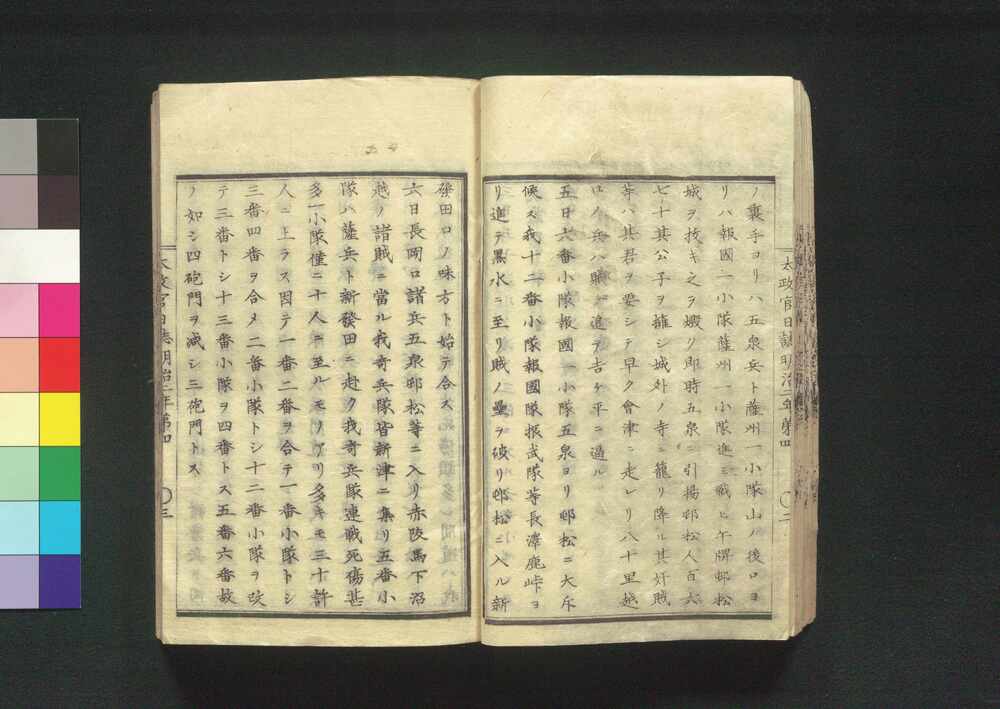 ノ裏手ヨリハ五泉兵ト薩州一小隊山ノ後ロヨ
リハ報國一小隊薩州一小隊進ミ戰ヒ午牌邨松
城ヲ拔キ之ヲ燬リ即時五泉ニ引揚邨松人百六
七十其公子ヲ擁シ城外ノ寺ニ籠リ降ル其奸賊
等ハ其君ヲ要シテ早ク會津ニ走レリ八十里越
口ノ兵ハ賊ヲ追テ吉ケ平ニ過ル
五日六番小隊報國一小隊五泉ヨリ邨松ニ大斥
候ス我十二番小隊報國隊振武隊等長澤鹿峠ヨ
リ進テ黒水ニ至リ賊ノ壘ヲ破リ邨松ニ入ル新
發田口ノ味方ト始テ合ス
六日長岡口諸兵五泉邨松等ニ入リ赤陂馬下沼
越ノ諸賊ニ當ル我奇兵隊皆新津ニ集リ五番小
隊ハ薩兵ト新發田ニ赴ク我奇兵隊連戰死傷甚
多一小隊僅ニ十人ニ至ルモノアリ多キモ三十許
人ニ上ラス因テ一番二番ヲ合テ一番小隊トシ
三番四番ヲ合メ二番小隊トシ十二番小隊ヲ改
テ三番トシ十三番小隊ヲ四番トス五番六番故
ノ如シ四砲門ヲ減シ三砲門トス
太政官日誌明治二年第四
〇三
太政官日誌明治二年第四